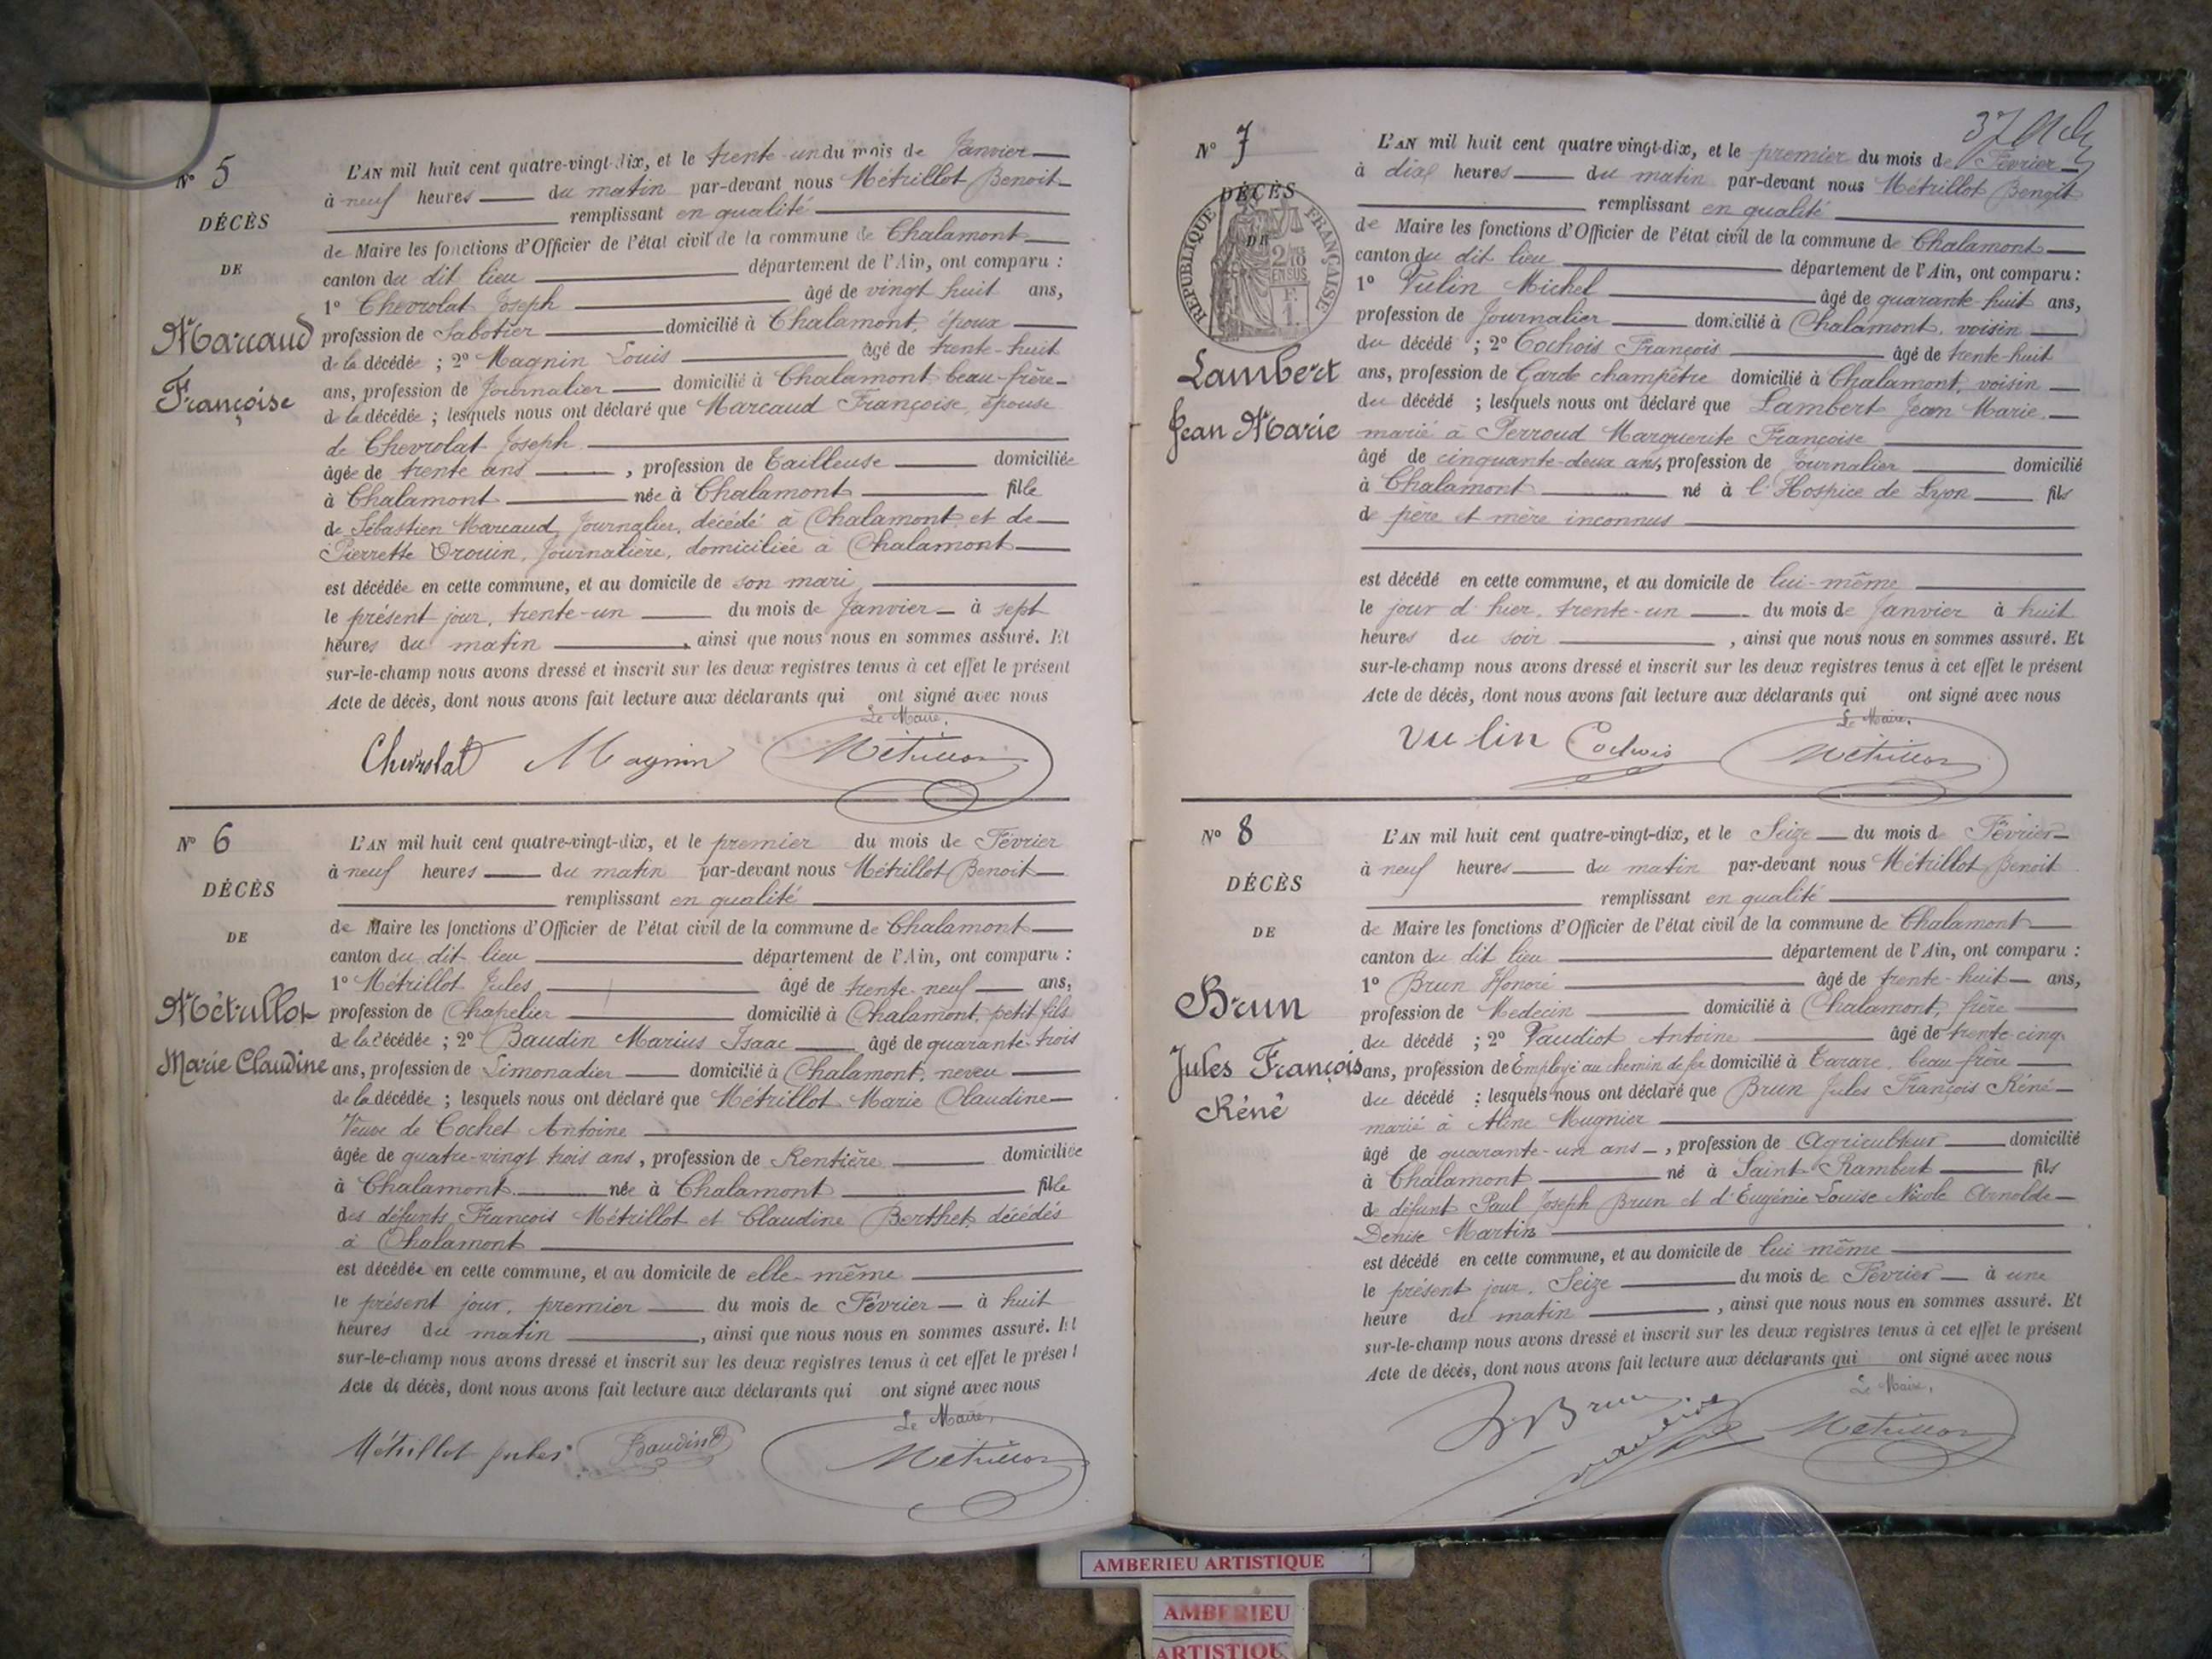 N° 5
DÉCÈS
DE
Marcaud
Françoise
L'AN mil huit cent quatre-vingt-dix, et le trente-un du mois de Janvier
à neuf heures du matin par-devant nous Métrillot Benoit
remplissant en qualité
de Maire les fonctions d'Officier de l'état civil de la commune de Chalamont
canton du dit lieu département de l'Ain, ont comparu :
1° Chevrolat Joseph âgé de vingt huit ans,
profession de Sabotier domicilié à Chalamont, époux
de la décédée ; 2° Magnin Louis âgé de trente-huit
ans, profession de Journalier domicilié à Chalamont beau-frère
de la décédée ; lesquels nous ont déclaré que Marcaud Françoise, épouse
de Chevrolat Joseph
âgée de trente ans , profession de Tailleuse domiciliée
à Chalamont née à Chalamont fille
de Sébastien Marcaud, Journalier, décédé à Chalamont et de
Pierrette Drouin, Journalière, domiciliée à Chalamont
est décédée en cette commune, et au domicile de son mari
le présent jour, trente-un du mois de Janvier à sept
heures du matin , ainsi que nous nous en sommes assuré. Et
sur-le-champ nous avons dressé et inscrit sur les deux registres tenus à cet effet le présent
Acte de décès, dont nous avons fait lecture aux déclarants qui ont signé avec nous
Le Maire,
Chevrolat Magnin Métrillot
N° 6
DÉCÈS
DE
Métrillot
Marie Claudine
L'AN mil huit cent quatre-vingt-dix, et le premier du mois de Février
à neuf heures du matin par-devant nous Métrillot Benoit
remplissant en qualité
de Maire les fonctions d'Officier de l'état civil de la commune de Chalamont
canton du dit lieu département de l'Ain, ont comparu :
1° Métrillot Jules, âgé de trente-neuf ans,
profession de Chapelier domicilié à Chalamont, petit fils
de la décédée ; 2° Baudin Marius Isaac âgé de quarante-trois
ans, profession de Limonadier domicilié à Chalamont, neveu
de la décédée ; lesquels nous ont déclaré que Métrillot Marie Claudine
Veuve de Cochet Antoine
âgée de quatre-vingt trois ans, profession de Rentière domiciliée
à Chalamont née à Chalamont fille
des défunts François Métrillot et Claudine Berthet, décédés
à Chalamont
est décédée en cette commune, et au domicile de elle-même
le présent jour, premier du mois de Février à huit
heures du matin , ainsi que nous nous en sommes assuré. Et
sur-le-champ nous avons dressé et inscrit sur les deux registres tenus à cet effet le présent
Acte de décès, dont nous avons fait lecture aux déclarants qui ont signé avec nous
Le Maire,
Métrillot Jules Baudin Métrillot
37
N° 7
DÉCÈS
DE
RÉPUBLIQUE FRANÇAISE
2/10
EN SUS
F.
1.
Lambert
Jean Marie
L'AN mil huit cent quatre vingt-dix, et le premier du mois de Février
à dix heures du matin par-devant nous Métrillot Benoit
remplissant en qualité
de Maire les fonctions d'Officier de l'état civil de la commune de Chalamont
canton du dit lieu département de l'Ain, ont comparu :
1° Vulin Michel âgé de quarante-huit ans,
profession de Journalier domicilié à Chalamont, voisin
du décédé ; 2° Cochois François âgé de trente-huit
ans, profession de Garde champêtre domicilié à Chalamont, voisin
du décédé ; lesquels nous ont déclaré que Lambert Jean Marie
marié à Perroud Marguerite Françoise
âgé de cinquante-deux ans, profession de Journalier domicilié
à Chalamont né à l'Hospice de Lyon fils
de père et mère inconnus
est décédé en cette commune, et au domicile de lui-même
le jour d'hier, trente-un du mois de Janvier à huit
heures du soir , ainsi que nous nous en sommes assuré. Et
sur-le-champ nous avons dressé et inscrit sur les deux registres tenus à cet effet le présent
Acte de décès, dont nous avons fait lecture aux déclarants qui ont signé avec nous
Le Maire,
Vulin Cochois Métrillot
N° 8
DÉCÈS
DE
Brun
Jules François
Réné
L'AN mil huit cent quatre-vingt-dix, et le Seize du mois de Février
à neuf heures du matin par-devant nous Métrillot Benoit
remplissant en qualité
de Maire les fonctions d'Officier de l'état civil de la commune de Chalamont
canton du dit lieu département de l'Ain, ont comparu :
1° Brun Honoré âgé de trente-huit ans,
profession de Medecin domicilié à Chalamont, frère
du décédé ; 2° Vaudiot Antoine âgé de trente-cinq
ans, profession de Employé au chemin de fer domicilié à Tarare, beau-frère
du décédé ; lesquels nous ont déclaré que Brun Jules François Réné
marié à Aline Mugnier
âgé de quarante-un ans , profession de Agriculteur domicilié
à Chalamont né à Saint-Rambert fils
de défunt Paul Joseph Brun et d'Eugénie Louise Nicole Arnolde
Denise Martin
est décédé en cette commune, et au domicile de lui même
le présent jour, Seize du mois de Février à une
heure du matin , ainsi que nous nous en sommes assuré. Et
sur-le-champ nous avons dressé et inscrit sur les deux registres tenus à cet effet le présent
Acte de décès, dont nous avons fait lecture aux déclarants qui ont signé avec nous
Le Maire,
Brun Métrillot
AMBERIEU ARTISTIQUE
AMBERIEU
ARTISTIQUE